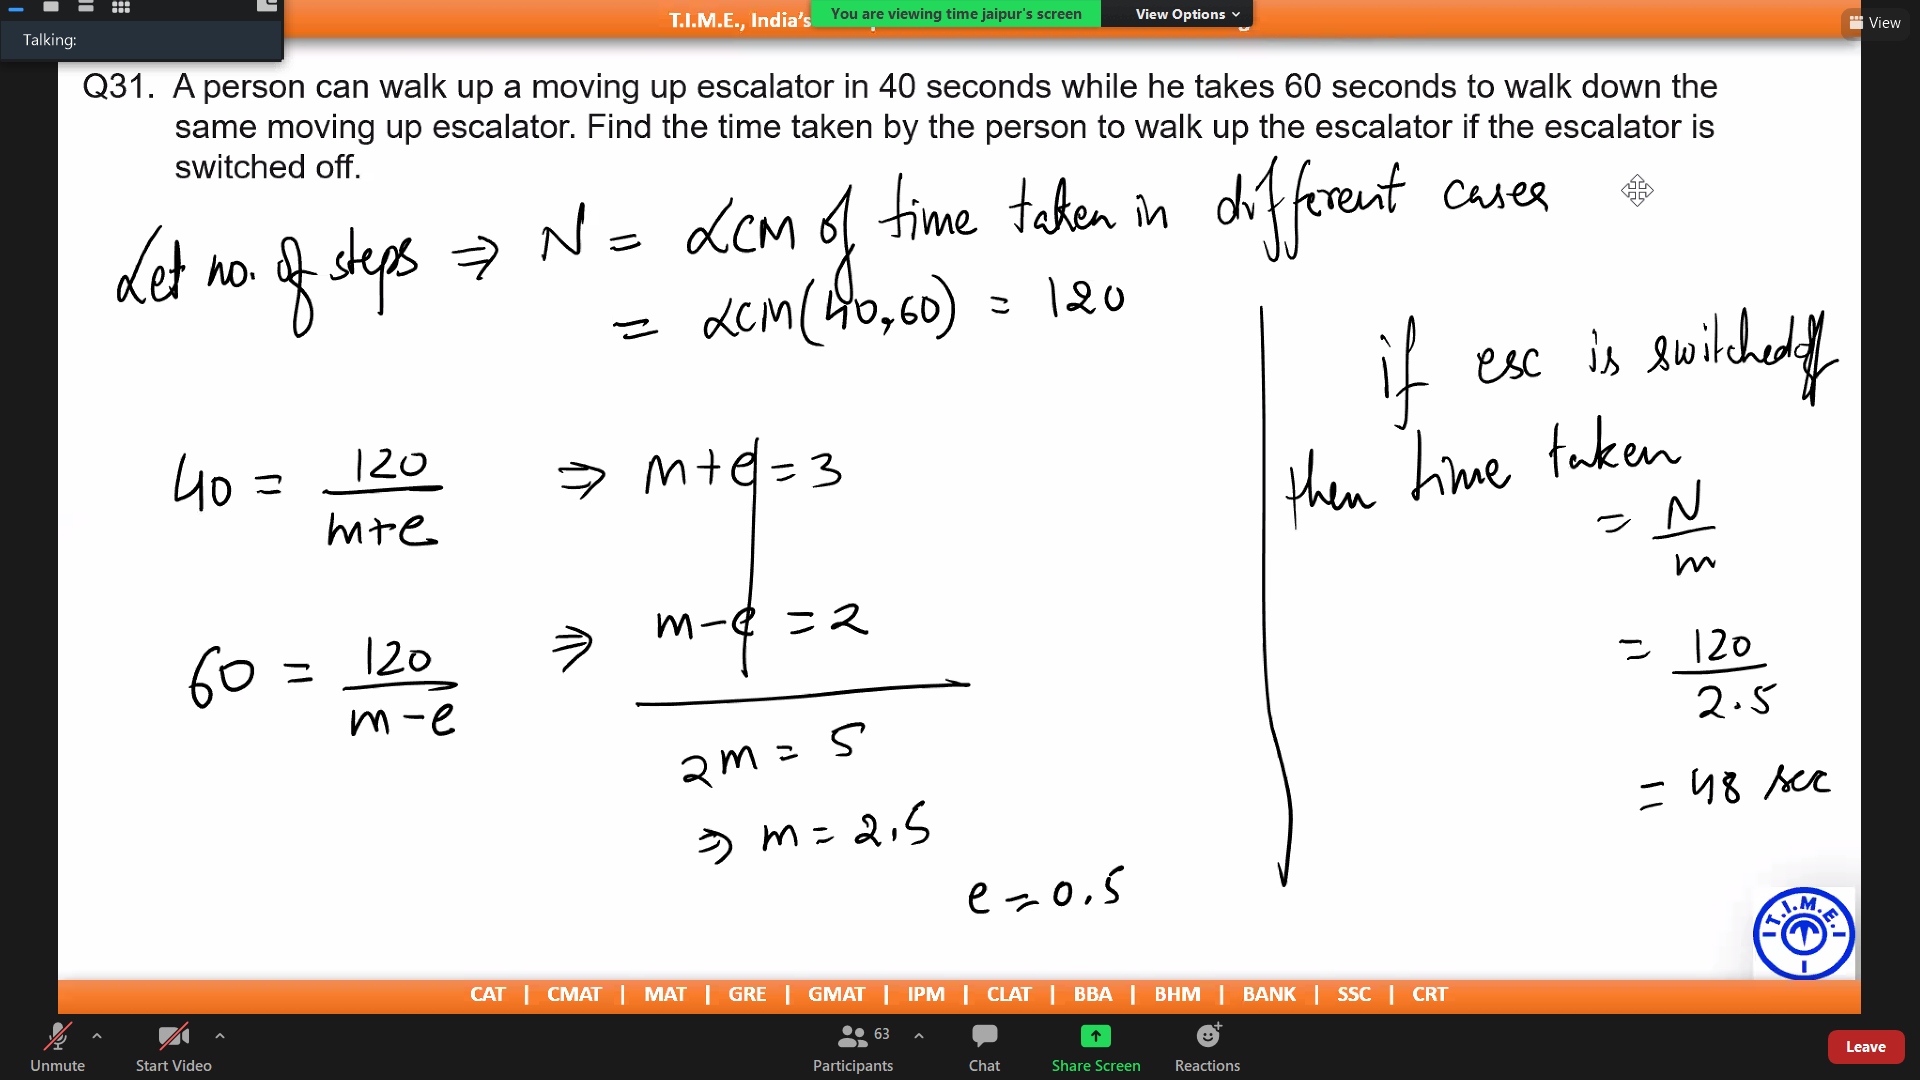 Talking:
T.I.M.E., India's
You are viewing time jaipur's screen
View Options
View
Q31. A person can walk up a moving up escalator in 40 seconds while he takes 60 seconds to walk down the
same moving up escalator. Find the time taken by the person to walk up the escalator if the escalator is
switched off.
Let no. of steps ⇒ N = LCM of time taken in different cases
= LCM(40,60) = 120
40 = 120/(m+e) ⇒ m+e = 3
60 = 120/(m-e) ⇒ m-e = 2
2m = 5
⇒ m = 2.5
e = 0.5
if esc is switched off
then time taken
= N/m
= 120/2.5
= 48 sec
T.I.M.E.
CAT | CMAT | MAT | GRE | GMAT | IPM | CLAT | BBA | BHM | BANK | SSC | CRT
Unmute
Start Video
63
Participants
Chat
Share Screen
Reactions
Leave